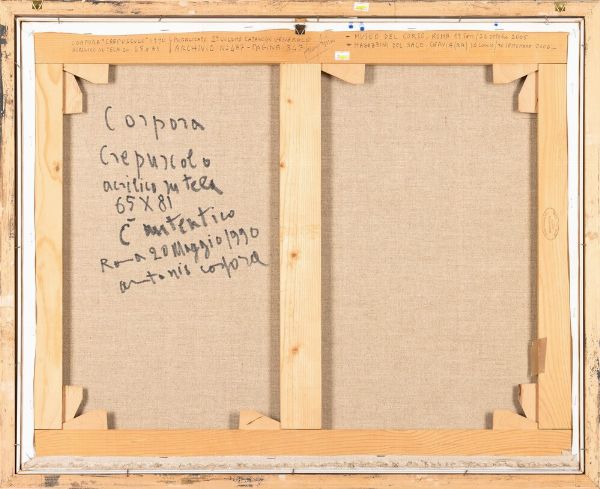 CORPORA "CREPUSCOLO" 1990
ACRILICO SU TELA 65 X 81
PUBBLICATO 2° VOLUME CATALOGO GENERALE
ARCHIVIO PAGINA 343
- MUSEO DEL CORSO, ROMA 2005
- MAGAZZINI DEL SALE, CERVIA (RA)
Corpora
Crepuscolo
acrilico su tela
65 X 81
È autentico
Roma 20 Maggio 1990
antonio corpora